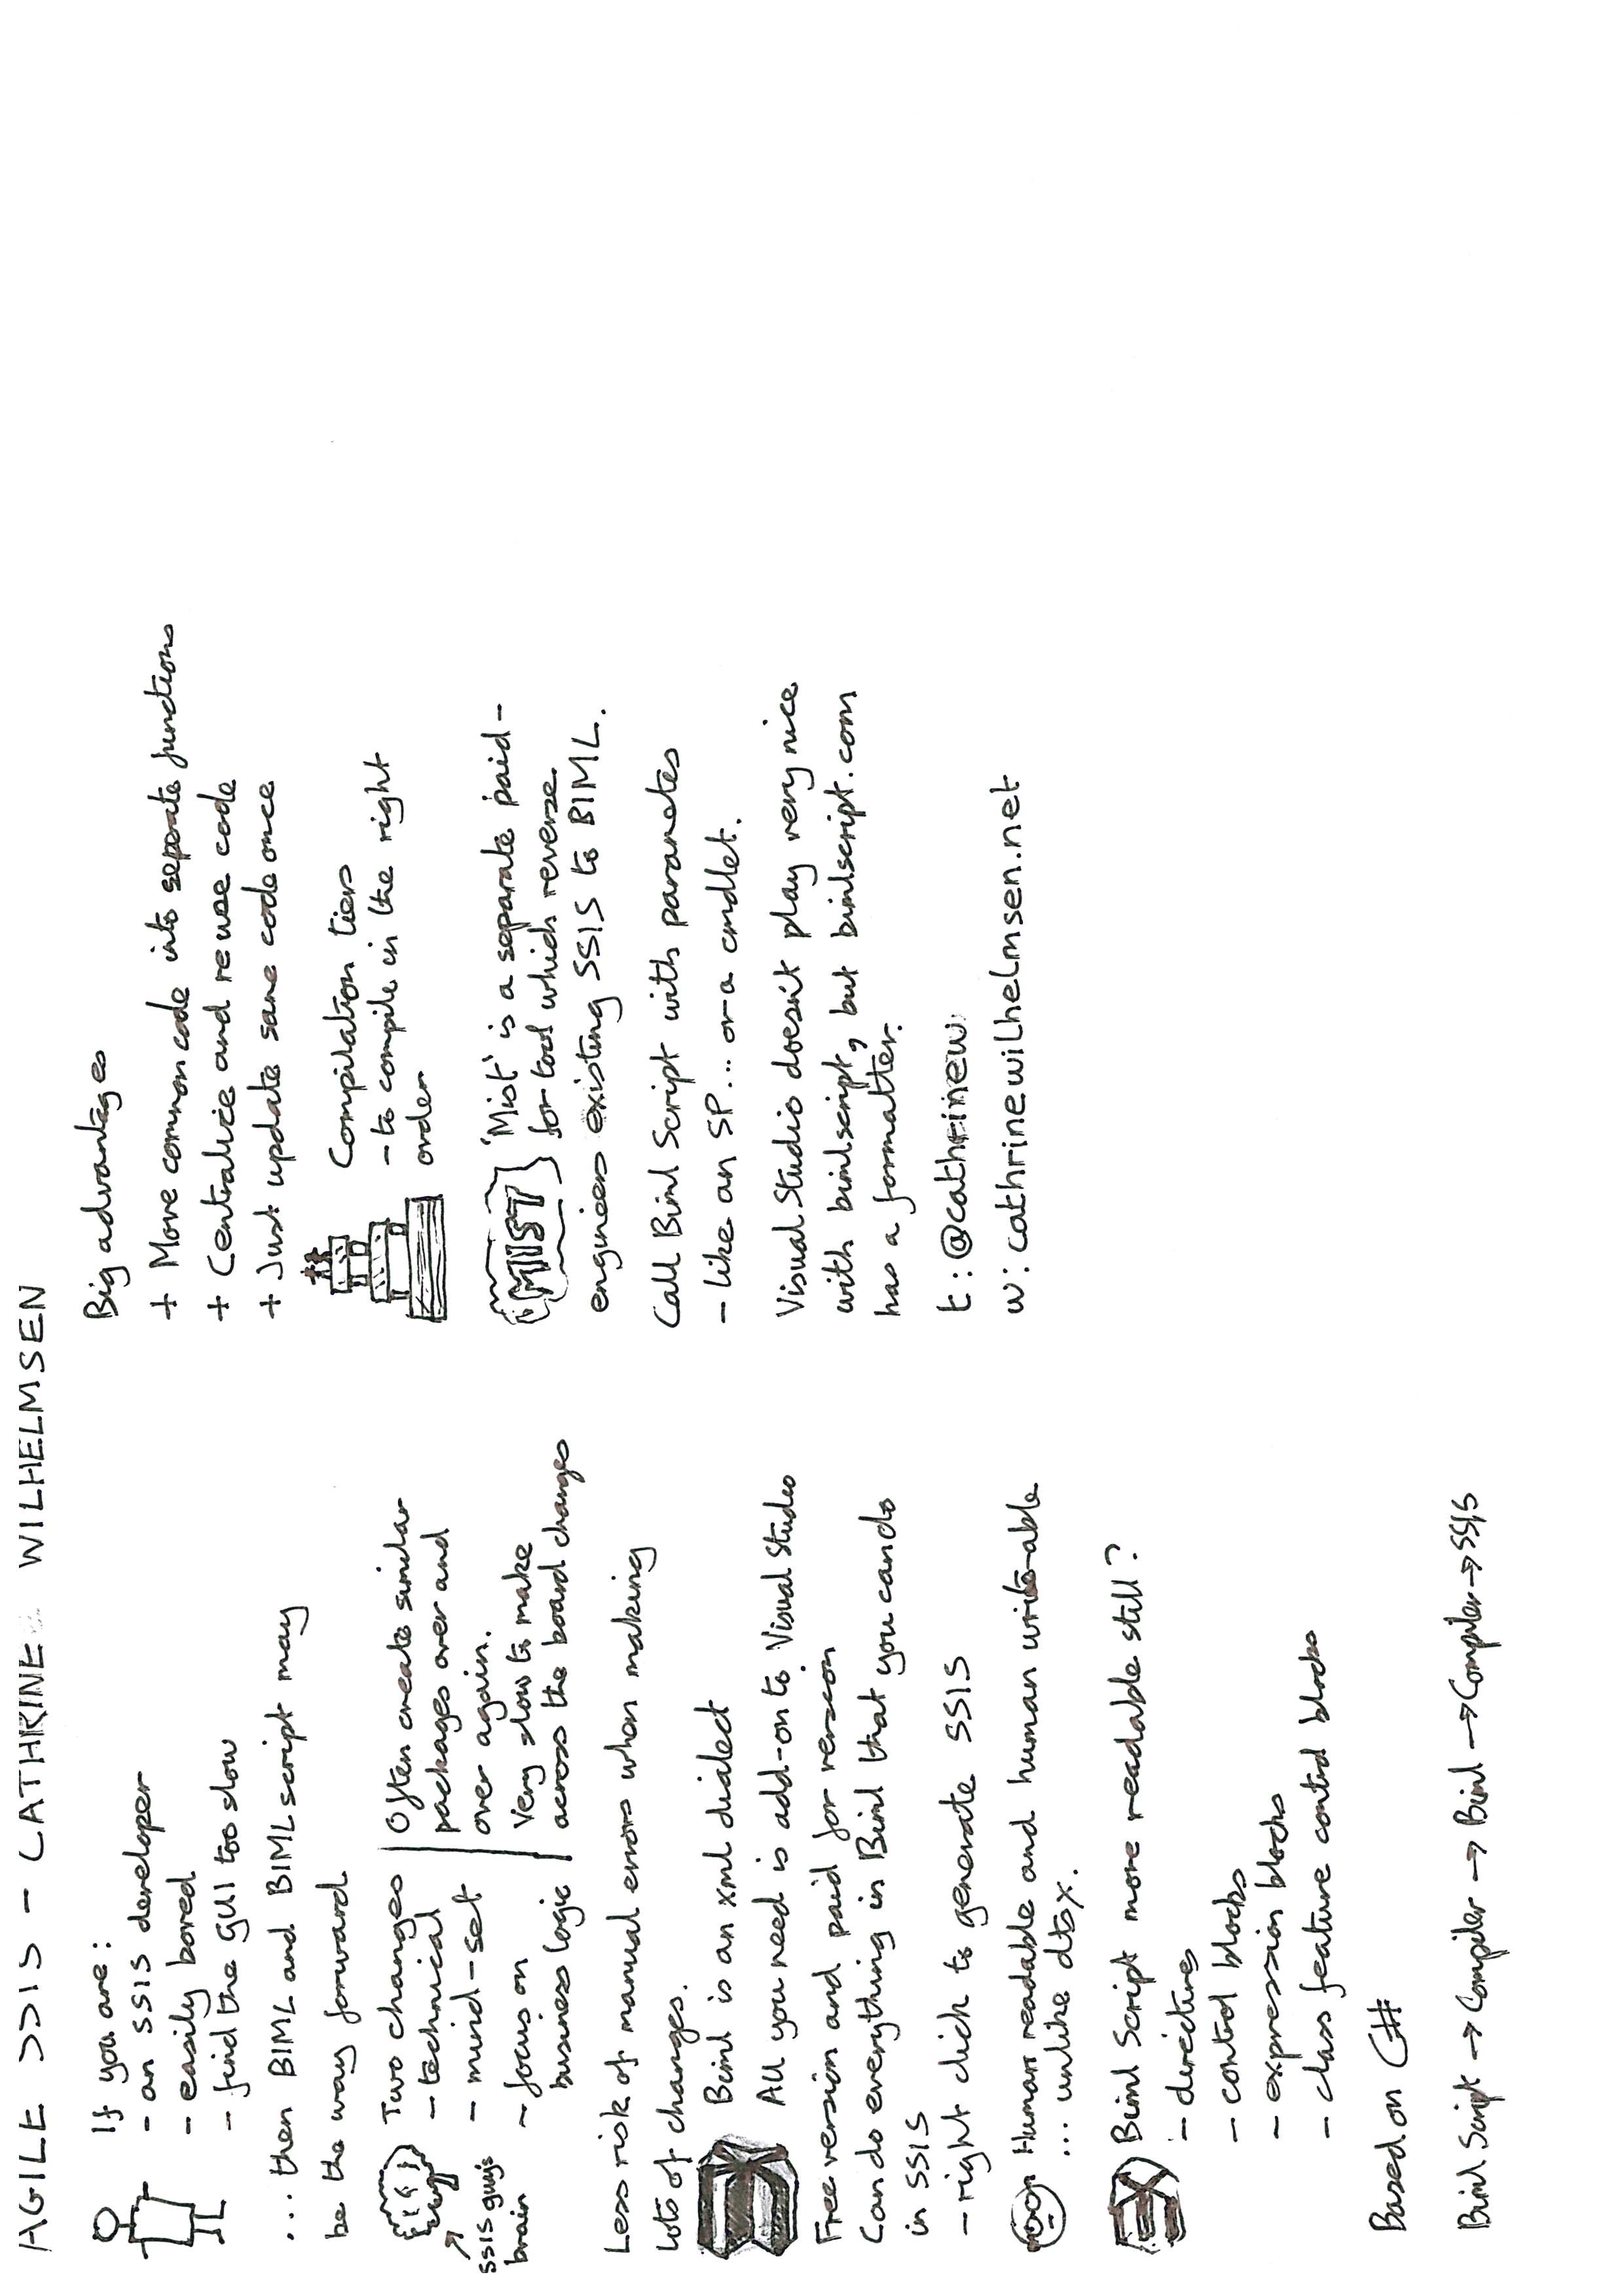 AGILE SSIS - CATHRINE WILHELMSEN
If you are:
- an SSIS developer
- easily bored
- find the GUI too slow
... then BIML and BIML script may
be the way forward
Two changes
- technical
- mind-set
~ focus on
business logic
SSIS guy's
brain
Often create similar
packages over and
over again.
Very slow to make
across the board changes
Less risk of manual errors when making
lots of changes.
Biml is an xml dialect
All you need is add-on to Visual Studio
Free version and paid for version
Can do everything in Biml that you can do
in SSIS
- right click to generate SSIS
Human readable and human write-able
... unlike dtsx.
Biml Script more readable still?
- directives
- control blocks
- expression blocks
- class feature control blocks
Based on C#
Biml Script → Compiler → Biml → Compiler → SSIS
Big advantages
+ Move common code into separate functions
+ Centralize and reuse code
+ Just update same code once
Compilation tiers
- to compile in the right
order
MIST
'Mist' is a separate paid-
for-tool which reverse
engineers existing SSIS to BIML.
Call Biml Script with parametes
- like an SP... or a cmdlet.
Visual Studio doesn't play very nice
with bimlscript, but bimlscript.com
has a formatter.
t: @cathrinew
w: cathrinewilhelmsen.net